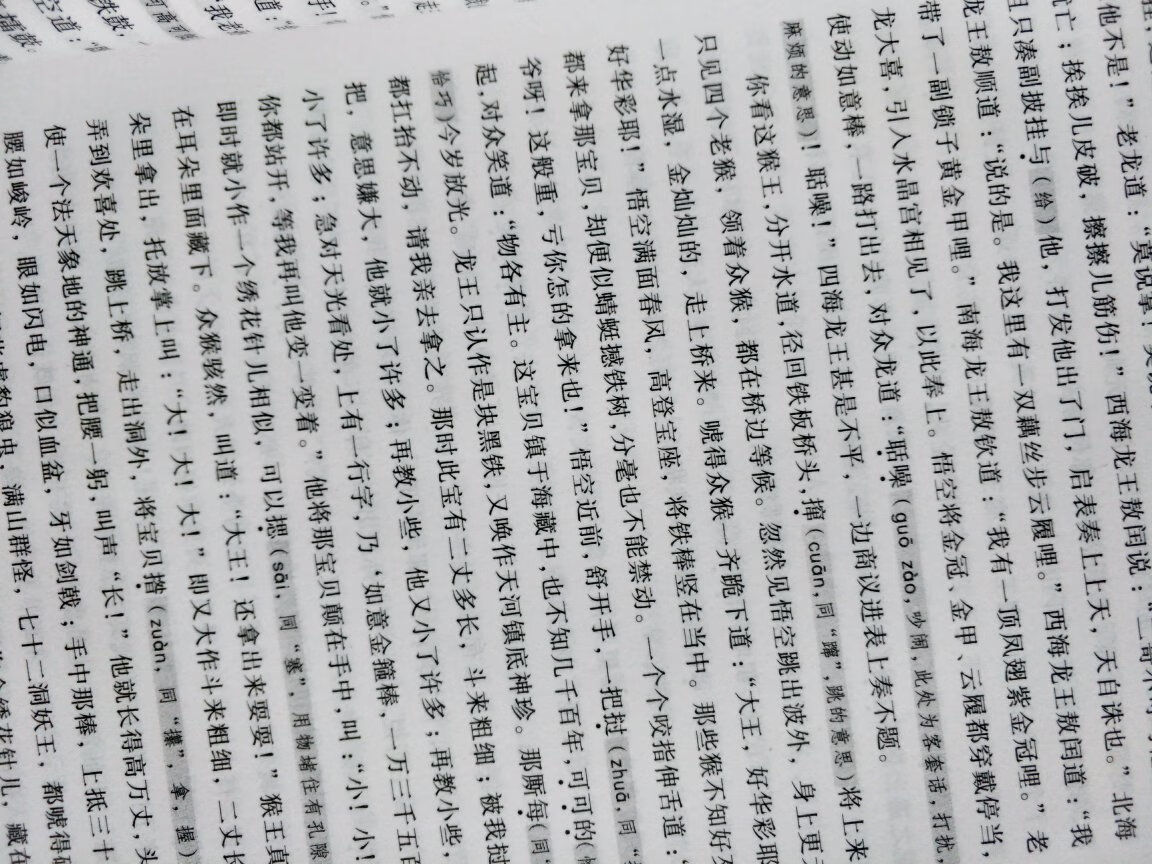 他不是！”老龙道：“莫说拿！
亡；挨挨儿皮破，擦擦儿筋伤！”西海龙王敖闰说：“二哥不可
且只凑副披挂与（给）他，打发他出了门，启表奏上上天，天自诛也。”北海
龙王敖顺道：“说的是。我这里有一双藕丝步云履哩。”西海龙王敖闰道：“我
带了一副锁子黄金甲哩。”南海龙王敖钦道：“我有一顶凤翅紫金冠哩。”老
龙大喜，引入水晶宫相见了，以此奉上。悟空将金冠、金甲、云履都穿戴停当，
使动如意棒，一路打出去，对众龙道：“聒噪（guō zào，吵闹，此处为客套话，打扰，
麻烦的意思）！聒噪！”四海龙王甚是不平，一边商议进表上奏不题。
你看这猴王，分开水道，径回铁板桥头，撺（cuān，同“蹿”，跳的意思）将上来
只见四个老猴，领着众猴，都在桥边等候。忽然见悟空跳出波外，身上更
一点水湿，金灿灿的，走上桥来。唬得众猴一齐跪下道：“大王，好华彩耶
好华彩耶！”悟空满面春风，高登宝座，将铁棒竖在当中。那些猴不知好歹
都来拿那宝贝，却便似蜻蜓撼铁树，分毫也不能禁动。一个个咬指伸舌道：“
爷呀！这般重，亏你怎的拿来也！”悟空近前，舒开手，一把挝（zhuā，同“
起，对众笑道：“物各有主。这宝贝镇于海藏中，也不知几千百年，可可的（
恰巧）今岁放光。龙王只认作是块黑铁，又唤作天河镇底神珍。那厮每（同“
都扛抬不动，请我亲去拿之。那时此宝有二丈多长，斗来粗细；被我挝
把，意思嫌大，他就小了许多；再教小些，他又小了许多；再教小些，
小了许多；急对天光看处，上有一行字，乃‘如意金箍棒，一万三千五百
你都站开，等我再叫他变一变着。”他将那宝贝颠在手中，叫：“小！小！
即时就小作一个绣花针儿相似，可以揌（sāi，同“塞”，用物堵住有孔隙
在耳朵里面藏下。众猴骇然，叫道：“大王！还拿出来耍耍！”猴王真
朵里拿出，托放掌上叫：“大！大！大！”即又大作斗来粗细，二丈长
弄到欢喜处，跳上桥，走出洞外，将宝贝揝（zuàn，同“攥”，拿，握）
使一个法天象地的神通，把腰一躬，叫声“长！”他就长得高万丈，头
腰如峻岭，眼如闪电，口似血盆，牙如剑戟；手中那棒，上抵三十
虎豹狼虫，满山群怪，七十二洞妖王，都唬得
绣花针儿，藏在